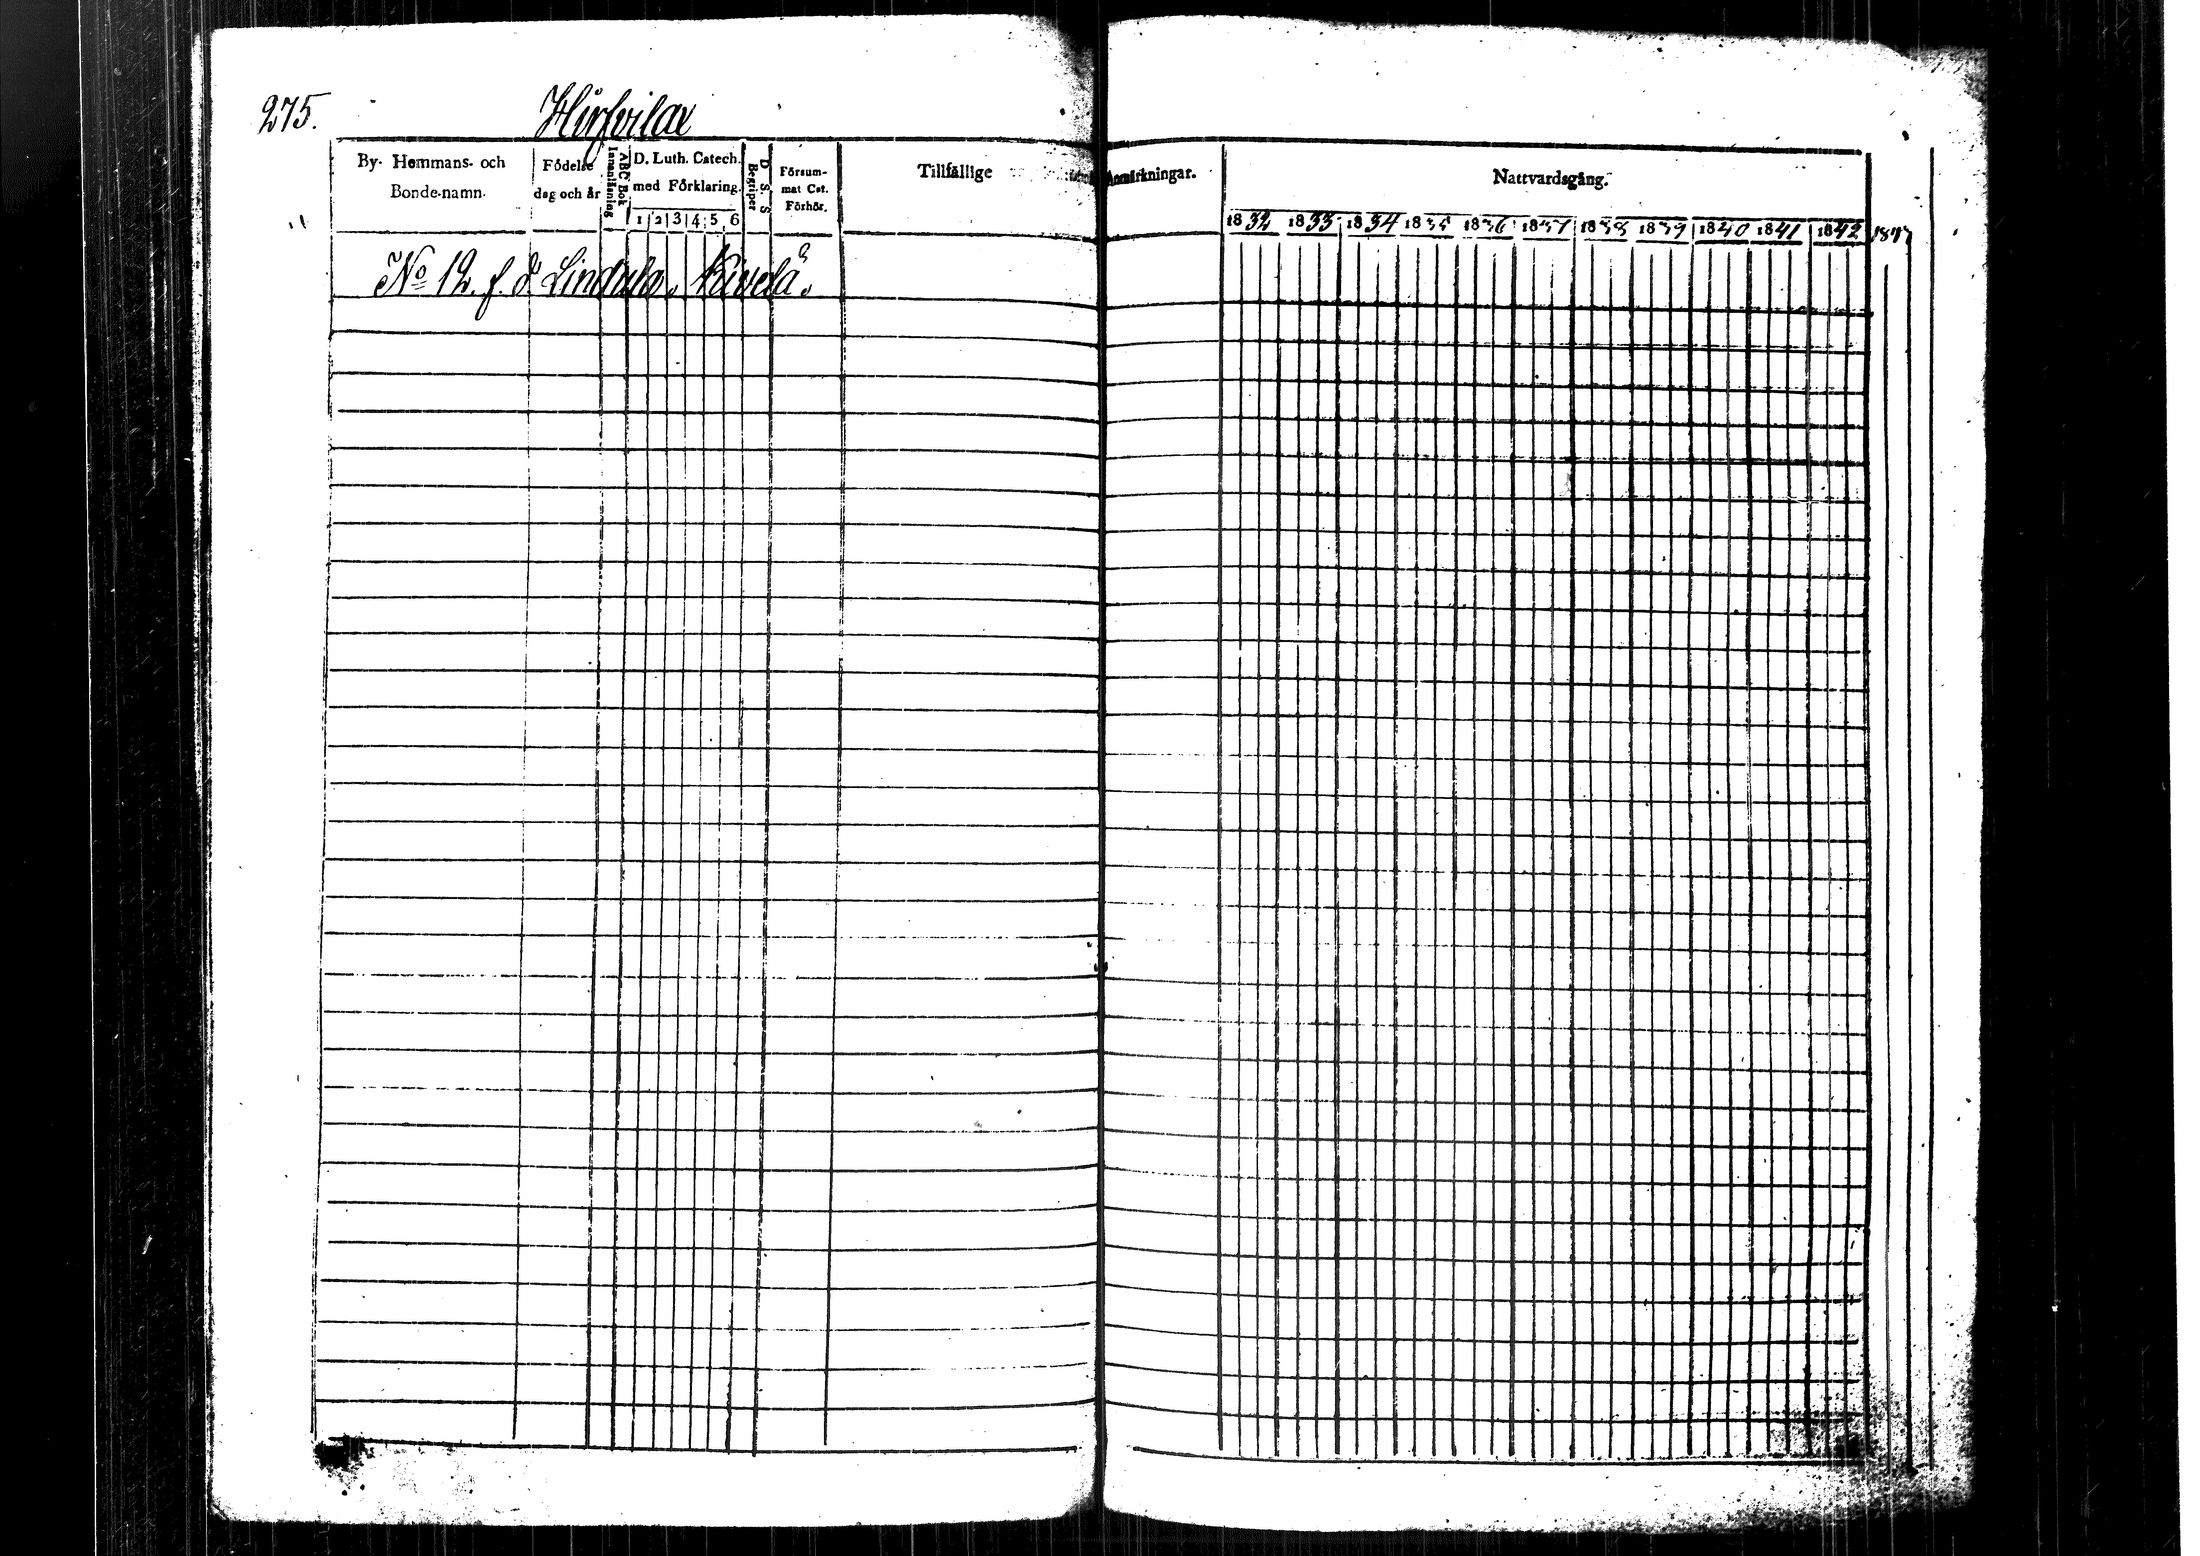 275.
Hirfvilax
By- Hemmans- och
Bonde-namn.
Födelse
dag och år
ABC Bok
Innanläsning
D. Luth. Catech.
med Förklaring.
1 2 3 4 5 6
D. S. S
Begriper
Försum-
mat Cat.
Förhör.
Tillfällige
Anmärkningar.
Nattvardsgång.
1832 1833 1834 1835 1836 1837 1838 1839 1840 1841 1842 1843
No 12. f. d. Lindula. Kivelä.